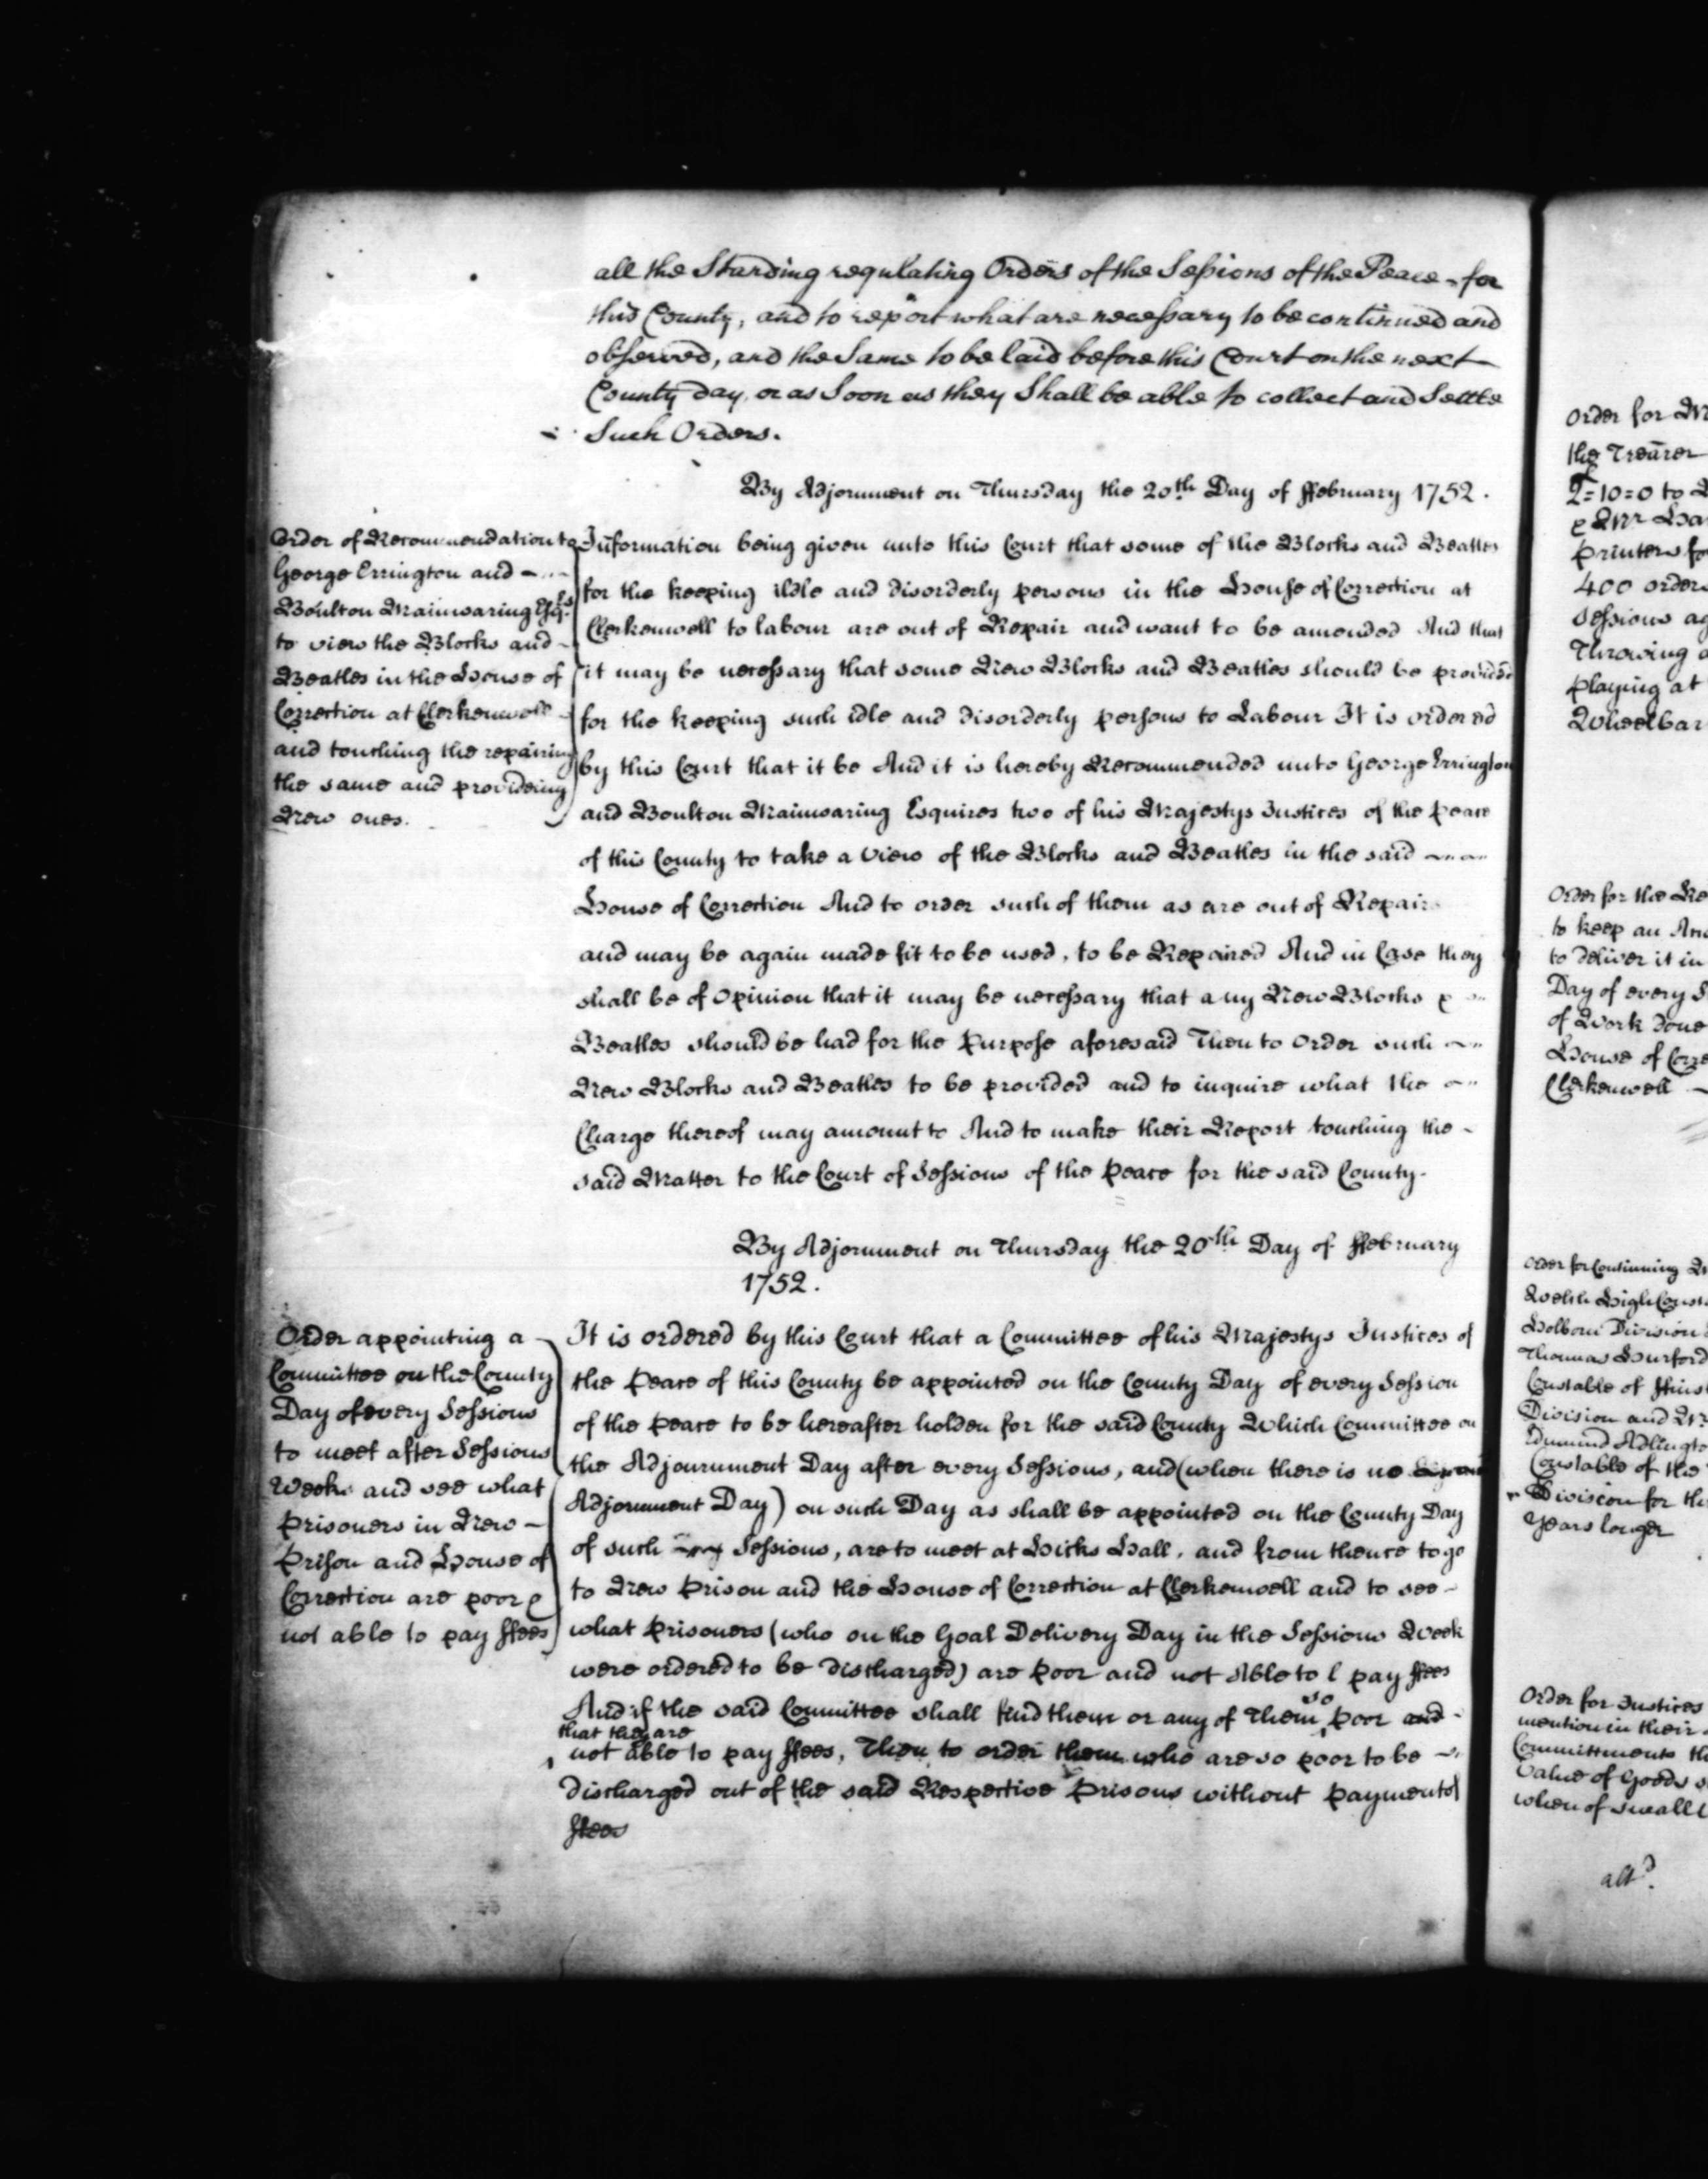 all the Standing regulating Orders of the Sessions of the Peace for
this County, and to report what are necessary to be continued and
observed, and the Same to be laid before this Court on the next
County day, or as Soon as they Shall be able to collect and Settle
Such Orders.
By Adjornment on Thursday the 20th Day of ffebruary 1752.
Order of Recommendation to
George Errington and
Boulton Mainwaring Esqrs.
to view the Blocks and
Beatles in the House of
Correction at Clerkenwell
and touching the repairing
the same and provideing
New ones.
Information being given unto this Court that some of the Blocks and Beatles
for the keeping ildle and disorderly persons in the House of Correction at
Clerkenwell to labour are out of Repair and want to be amended And that
it may be necessary that some New Blocks and Beatles should be provided
for the keeping such idle and disorderly persons to Labour It is ordered
by this Court that it be And it is hereby Recommended unto George Errington
and Boulton Mainwaring Esquires two of his Majestys Justices of the peace
of this County to take a View of the Blocks and Beatles in the said
House of Correction And to order such of them as are out of Repair
and may be again made fit to be used, to be Repaired And in Case they
shall be of Opinion that it may be necessary that any New Blocks &
Beatles should be had for the Purpose aforesaid Then to Order such
New Blocks and Beatles to be provided and to inquire what the
Charge thereof may amount to And to make their Report touching the
said Matter to the Court of Sessions of the Peace for the said County.
By Adjornment on Thursday the 20th Day of ffebruary
1752.
Order appointing a
Committee on the County
Day of every Sessions
to meet after Sessions
Week and see what
prisoners in New
Prison and House of
Correction are poor &
not able to pay ffees
It is ordered by this Court that a Committee of his Majestys Justices of
the Peace of this County be appointed on the County Day of every Session
of the Peace to be hereafter holden for the said County Which Committee on
the Adjournment Day after every Sessions, and (when there is no
Adjornment Day) on such Day as shall be appointed on the County Day
of such Sessions, are to meet at Hicks Hall, and from thence to go
to New Prison and the House of Correction at Clerkenwell and to see
what Prisoners (who on the Goal Delivery Day in the Sessions Week
were ordered to be discharged) are Poor and not Able to pay ffees
And if the said Committee shall find them or any of Them so Poor and
that they are
not able to pay ffees, Then to order them who are so poor to be
discharged out of the said Respective Prisons without payment of
ffees
Order for
the Treãrer
2=10=0 to
printers
400 orders
Sessions
Throwing
playing at
Wheelbar
Order for the
to keep an
to deliver it in
Day of every
of Work done
House of
Clerkenwell
Order for Continuing
Welch High
Holborn Division
Thomas Burford
Constable of
Division and
Edmund
Constable of the
Division for
years longer
Order for Justices
mention in their
Committments
Value of Goods
when of small